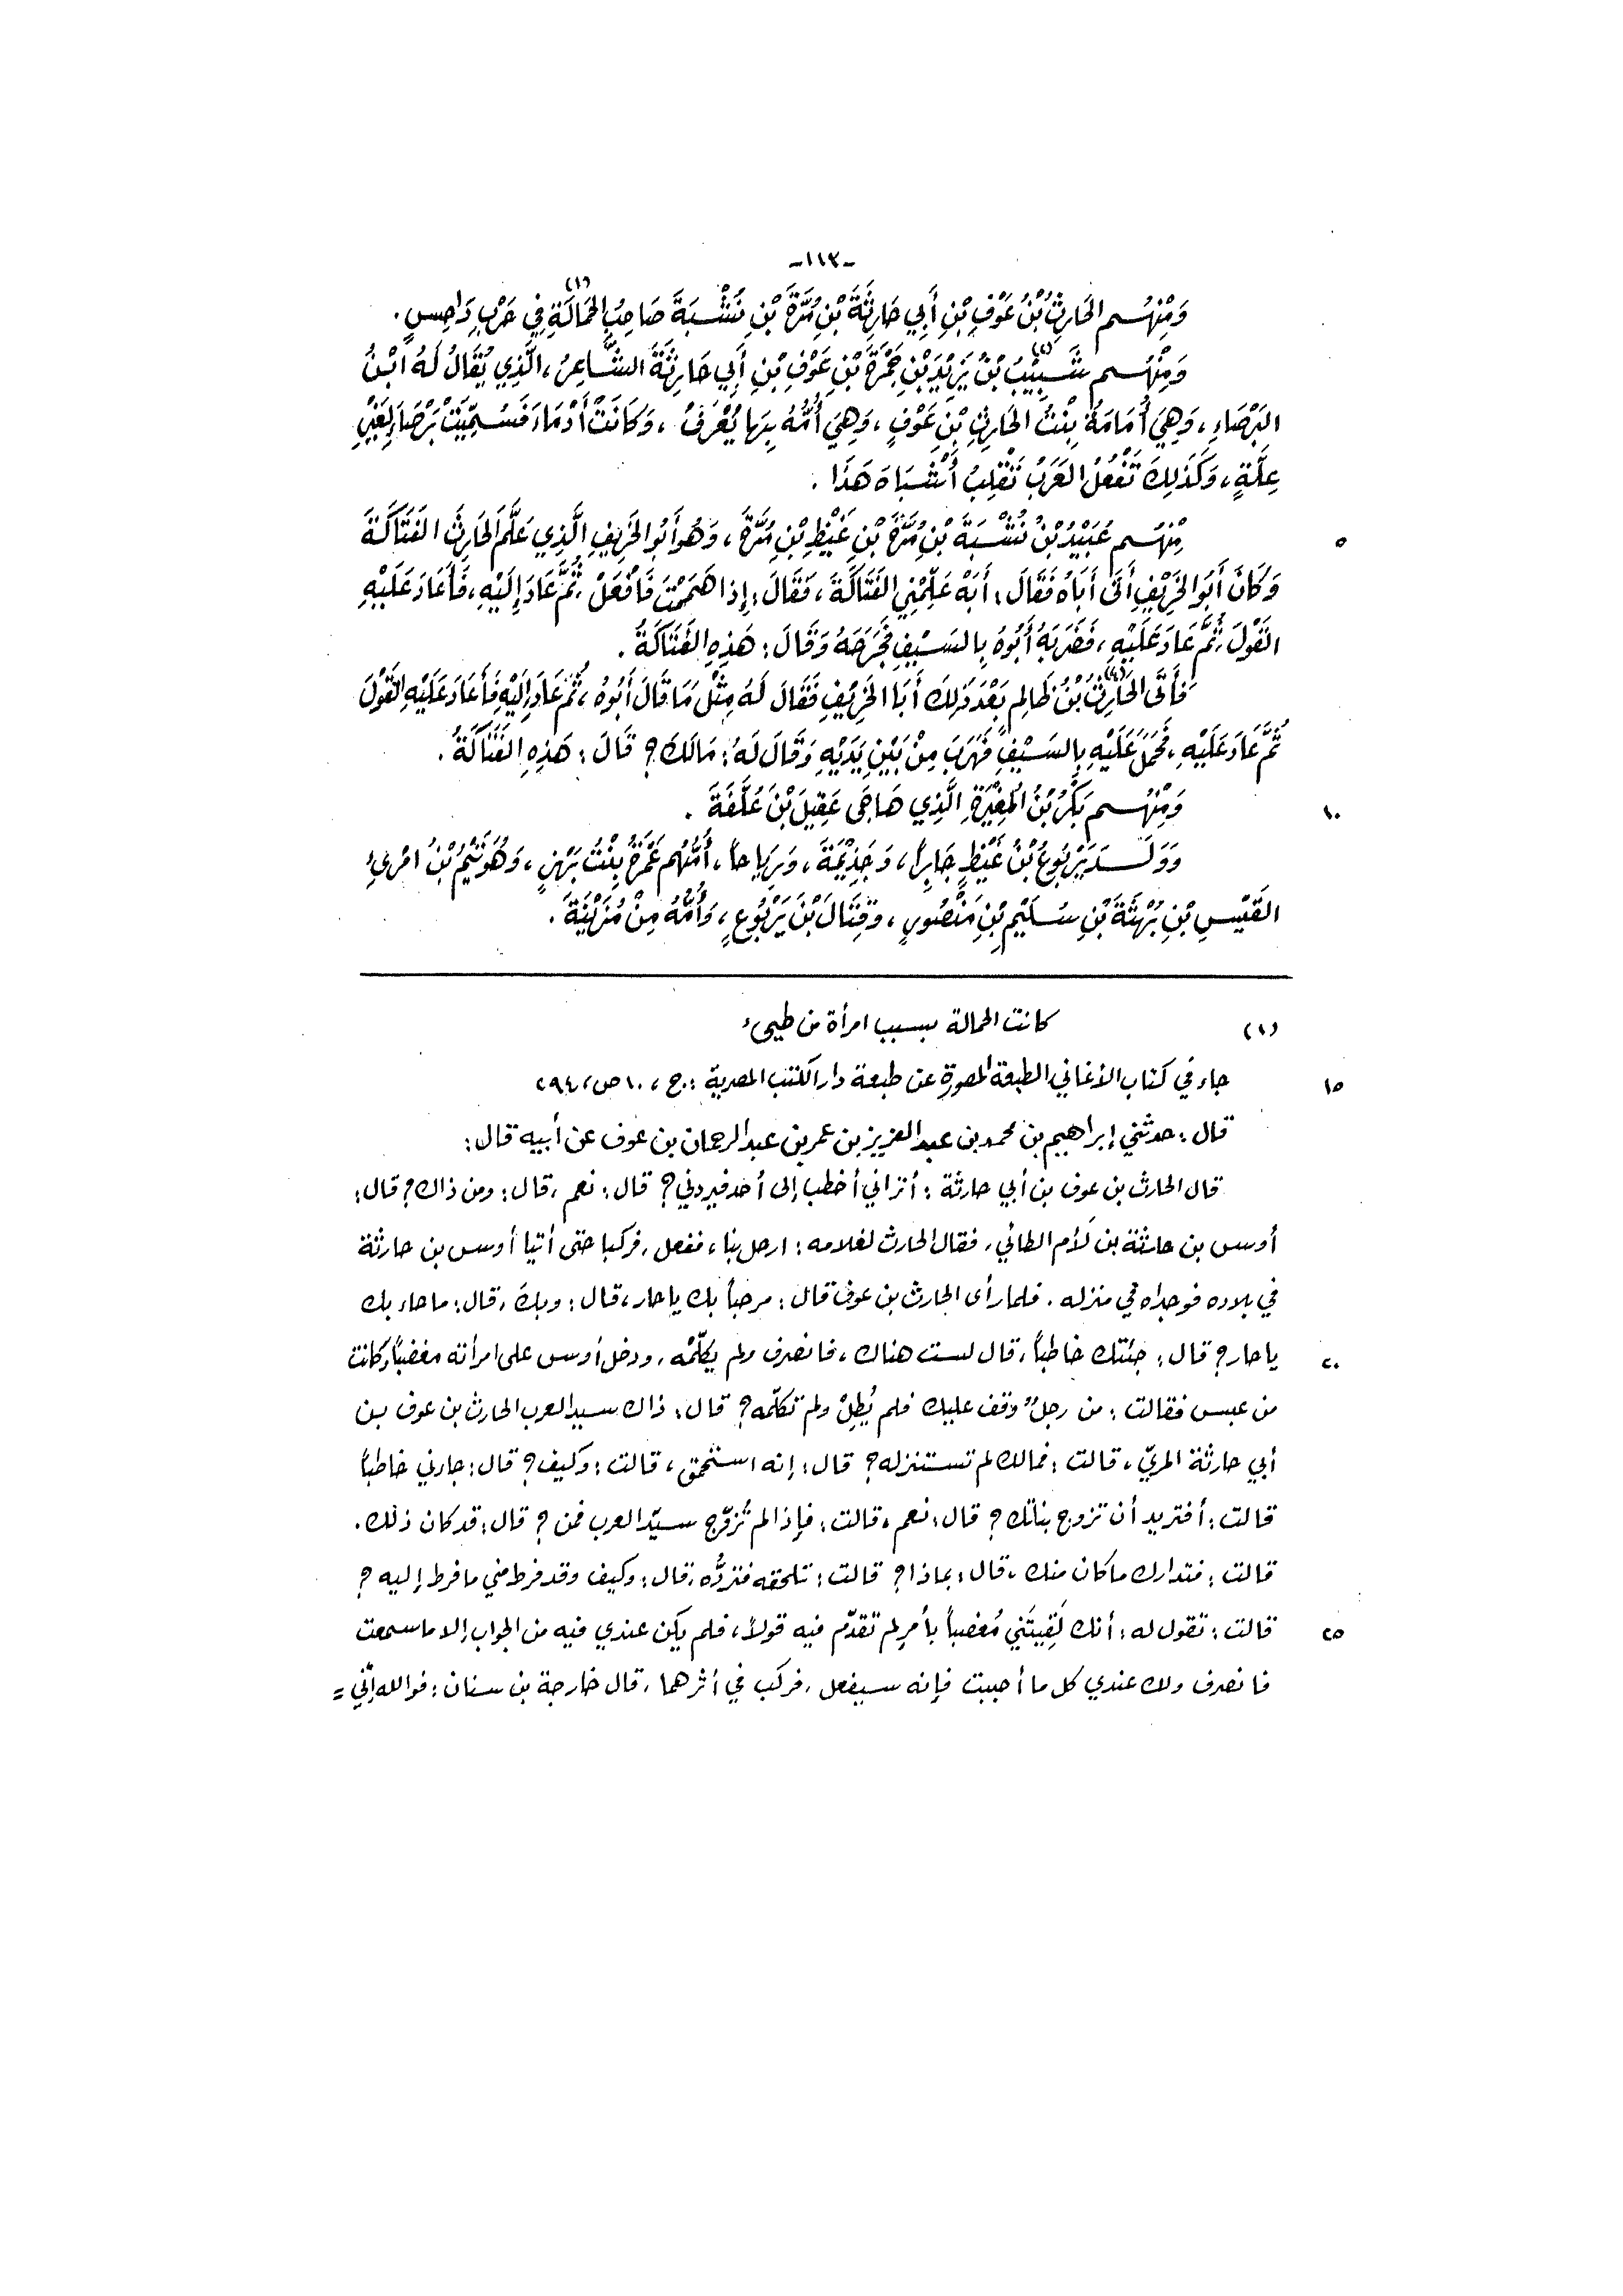 -١١٣-
وَمِنْهُم الحَارِثُ بْنُ عَوْفِ بْنِ أَبِي حَارِثَةَ بْنِ مُرَّةَ بْنِ نُشْبَةَ صَاحِبُ الحَمَالَةِ (١) فِي حَرْبِ دَاحِسٍ.
وَمِنْهُم شَبِيْبُ (٢) بْنُ يَزِيْدَ بْنِ جَمْرَةَ بْنِ عَوْفِ بْنِ أَبِي حَارِثَةَ الشَّاعِرُ، الَّذِي يُقَالُ لَهُ ابْنُ
البَرْصَاءِ، وَهِيَ أُمَامَةُ بِنْتُ الحَارِثِ بْنِ عَوْفٍ، وَهِيَ أُمُّهُ بِهَا يُعْرَفُ، وَكَانَتْ أَدْمَاءَ فَسُمِّيَتْ بَرْصَاءَ لِغَيْرِ
عِلَّةٍ، وَكَذَلِكَ تَفْعَلُ العَرَبُ تَقْلِبُ أَشْبَاهَ هَذَا.
٥ مِنْهُم عُبَيْدُ بْنُ نُشْبَةَ بْنِ مُرَّةَ بْنِ غَيْظِ بْنِ مُرَّةَ، وَهُوَ أَبُو الخَرِيفِ الَّذِي عَلَّمَ الحَارِثَ الفَتَاكَةَ
وَكَانَ أَبُو الخَرِيْفِ أَتَى أَبَاهُ فَقَالَ: أَبَهْ عَلِّمْنِي الفَتَاكَةَ، فَقَالَ: إِذَا هَمَمْتَ فَافْعَلْ، ثُمَّ عَادَ إِلَيْهِ، فَأَعَادَ عَلَيْهِ
القَوْلَ، ثُمَّ عَادَ عَلَيْهِ، فَضَرَبَهُ أَبُوهُ بِالسَيْفِ فَجَرَحَهُ وَقَالَ: هَذِهِ الفَتَاكَةُ.
فَأَتَى الحَارِثُ (٣) بْنُ ظَالِمٍ بَعْدَ ذَلِكَ أَبَا الخَرِيْفِ فَقَالَ لَهُ مِثْلَ مَا قَالَ أَبُوهُ، ثُمَّ عَادَ إِلَيْهِ فَأَعَادَ عَلَيْهِ القَوْلَ
ثُمَّ عَادَ عَلَيْهِ، فَحَمَلَ عَلَيْهِ بِالسَيْفِ فَهَرَبَ مِنْ بَيْنِ يَدَيْهِ وَقَالَ لَهُ: مَالَكَ؟ قَالَ: هَذِهِ الفَتَاكَةُ.
١٠ وَمِنْهُم بَكْرُ بْنُ المُغِيْرَةِ الَّذِي هَاجَى عَقِيلَ بْنَ عُلَّفَةَ.
وَوَلَدَ يَرْبُوعُ بْنُ غَيْظٍ جَابِراً، وَجَذِيْمَةَ، وَرِيَاحاً، أُمُّهُم عَمْرَةُ بِنْتُ بَهْزٍ، وَهُوَ تَيْمُ بْنُ امْرِئِ
القَيْسِ بْنِ بُهْثَةَ بْنِ سُلَيْمِ بْنِ مَنْصُورٍ، وَقِتَالَ بْنَ يَرْبُوعٍ، وَأُمُّهُ مِنْ مُزَيْنَةَ.
(١) كانت الحمالة بسبب امرأة من طيىء
١٥ جاء في كتاب الأغاني الطبعة المصورة عن طبعة دار الكتب المصرية: ج، ١٠ ص، ٢٩٤
قال: حدثني إبراهيم بن محمد بن عبد العزيز بن عمر بن عبد الرحمان بن عوف عن أبيه قال:
قال الحارث بن عوف بن أبي حارثة: أتراني أخطب إلى أحد فيردني؟ قال: نعم، قال: ومن ذاك؟ قال:
أوس بن حارثة بن لَأم الطائي، فقال الحارث لغلامه: ارحل بنا، ففعل، فركبا حتى أتيا أوس بن حارثة
في بلاده فوجداه في منزله. فلما رأى الحارث بن عوف قال: مرحباً بك يا حار، قال: وبكَ، قال: ما جاء بك
٢٠ يا حار؟ قال: جئتك خاطباً، قال لست هناك، فانصرف ولم يكلّمْه، ودخل أوس على امرأته مغضباً وكانت
من عبس فقالت: من رجلٌ وقف عليك فلم يُطِلْ ولم تكلّمه؟ قال: ذاك سيد العرب الحارث بن عوف بن
أبي حارثة المريّ، قالت: فمالك لم تستنزله؟ قال: إنه استحمق، قالت: وكيف؟ قال: جاءني خاطباً
قالت: أفتريد أن تزوج بناتك؟ قال: نعم، قالت: فإذا لم تُزوّج سيّد العرب فمن؟ قال: قد كان ذلك.
قالت: فتدارك ما كان منك، قال: بماذا؟ قالت: تلحقه فتردُّه، قال: وكيف وقد فرط مني ما فرط إليه؟
٢٥ قالت: تقول له: أنك لَقِيتَني مُغضباً بأمرٍ لم تقدّم فيه قولاً، فلم يكن عندي فيه من الجواب إلا ما سمعت
فانصرف ولك عندي كل ما أحببت فإنه سيفعل، فركب في أثرهما، قال خارجة بن سنان: فوالله إنّي =